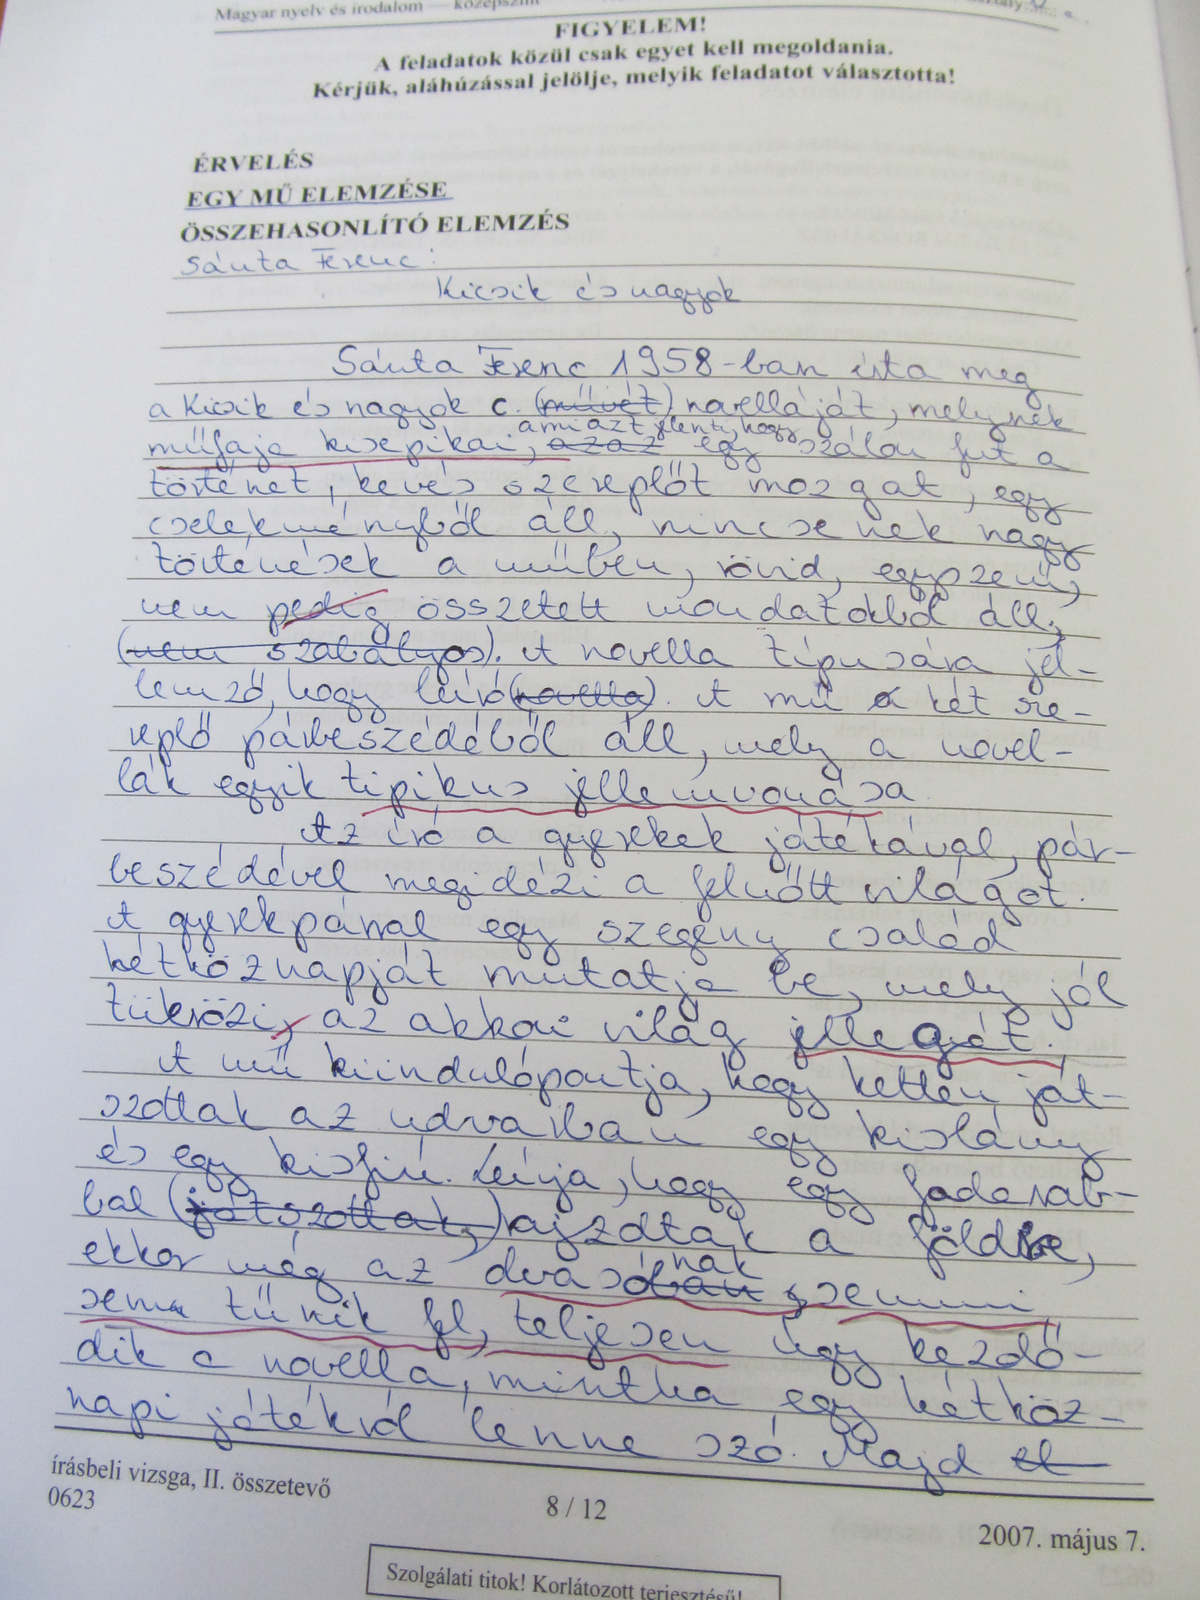 Magyar nyelv és irodalom — középszint
FIGYELEM!
A feladatok közül csak egyet kell megoldania.
Kérjük, aláhúzással jelölje, melyik feladatot választotta!
ÉRVELÉS
EGY MŰ ELEMZÉSE
ÖSSZEHASONLÍTÓ ELEMZÉS
Sánta Ferenc:
Kicsik és nagyok
Sánta Ferenc 1958-ban írta meg
a Kicsik és nagyok c. (művét) novelláját, melynek
amiazt jelenti, hogy
műfaja kisepikai, azaz egy szálon fut a
történet, kevés szereplőt mozgat, egy
cselekményből áll, nincsenek nagy
történések a műben, rövid, egyszerű,
nem pedig összetett mondatokból áll,
(nem szabályos). A novella típusára jel-
lemző, hogy leíró (novella). A mű a két sze-
replő párbeszédéből áll, mely a novel-
lák egyik tipikus jellemvonása.
Az író a gyerekek játékával, pár-
beszédével megidézi a felnőtt világot.
A gyerekpárral egy szegény család
hétköznapját mutatja be, mely jól
tükrözi, az akkori világ jellegját.
A mű kiindulópontja, hogy ketten ját-
szottak az udvarban egy kislány
és egy kisfiú. Leírja, hogy egy fadarab-
bal (játszottak,) rajzoltak a földbe,
ekkor még az olvasónak semmi
sem tűnik fel, teljesen úgy kezdő-
dik a novella, mintha egy hétköz-
napi játékról lenne szó. Majd el
írásbeli vizsga, II. összetevő
0623
8 / 12
2007. május 7.
Szolgálati titok! Korlátozott terjesztésű!